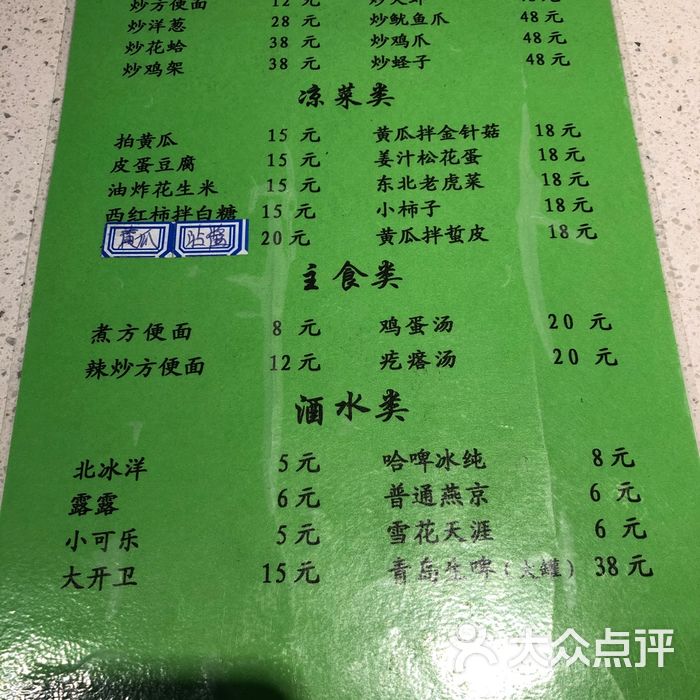 炒方便面 12 元
炒洋葱 28 元 炒鱿鱼爪 48 元
炒花蛤 38 元 炒鸡爪 48元
炒鸡架 38 元 炒蛏子 48元
凉菜类
拍黄瓜 15 元 黄瓜拌金针菇 18元
皮蛋豆腐 15 元 姜汁松花蛋 18元
油炸花生米 15 元 东北老虎菜 18元
西红柿拌白糖 15元 小柿子 18元
黄瓜 沾酱 20元 黄瓜拌蜇皮 18元
主食类
煮方便面 8 元 鸡蛋汤 20 元
辣炒方便面 12元 疙瘩汤 20 元
酒水类
北冰洋 5元 哈啤冰纯 8元
露露 6元 普通燕京 6 元
小可乐 5元 雪花天涯 6 元
大开卫 15元 青岛生啤(大罐) 38元
大众点评